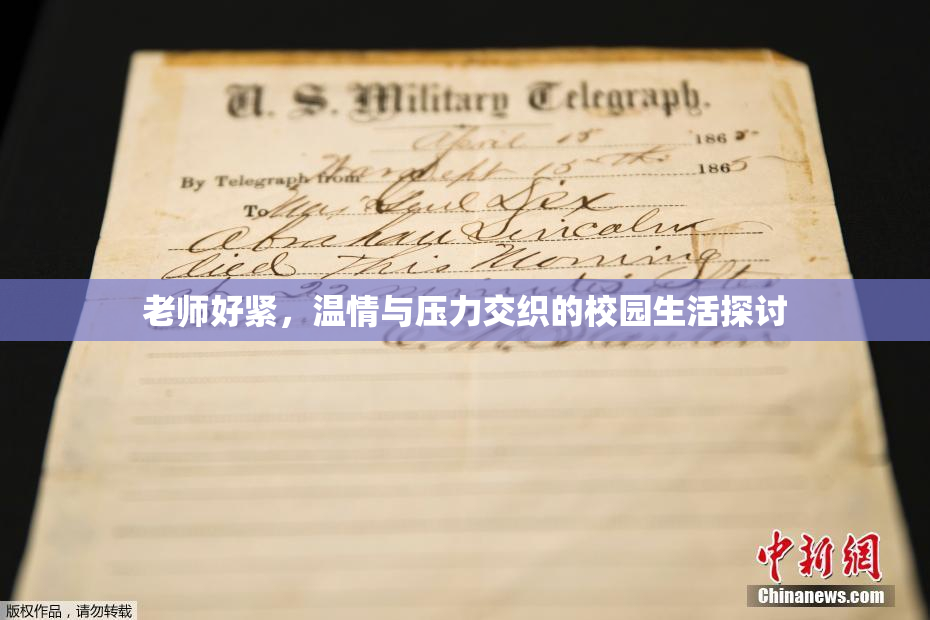 U. S. Military Telegraph.
April 15 1865
By Telegraph from War Dept 15th 1865
To Maj Genl Dix
Abraham Lincoln
died This Morning
at 22 minutes after
老师好紧，温情与压力交织的校园生活探讨
E. M. Stanton
中新網
Chinanews.com
版权作品，请勿转载